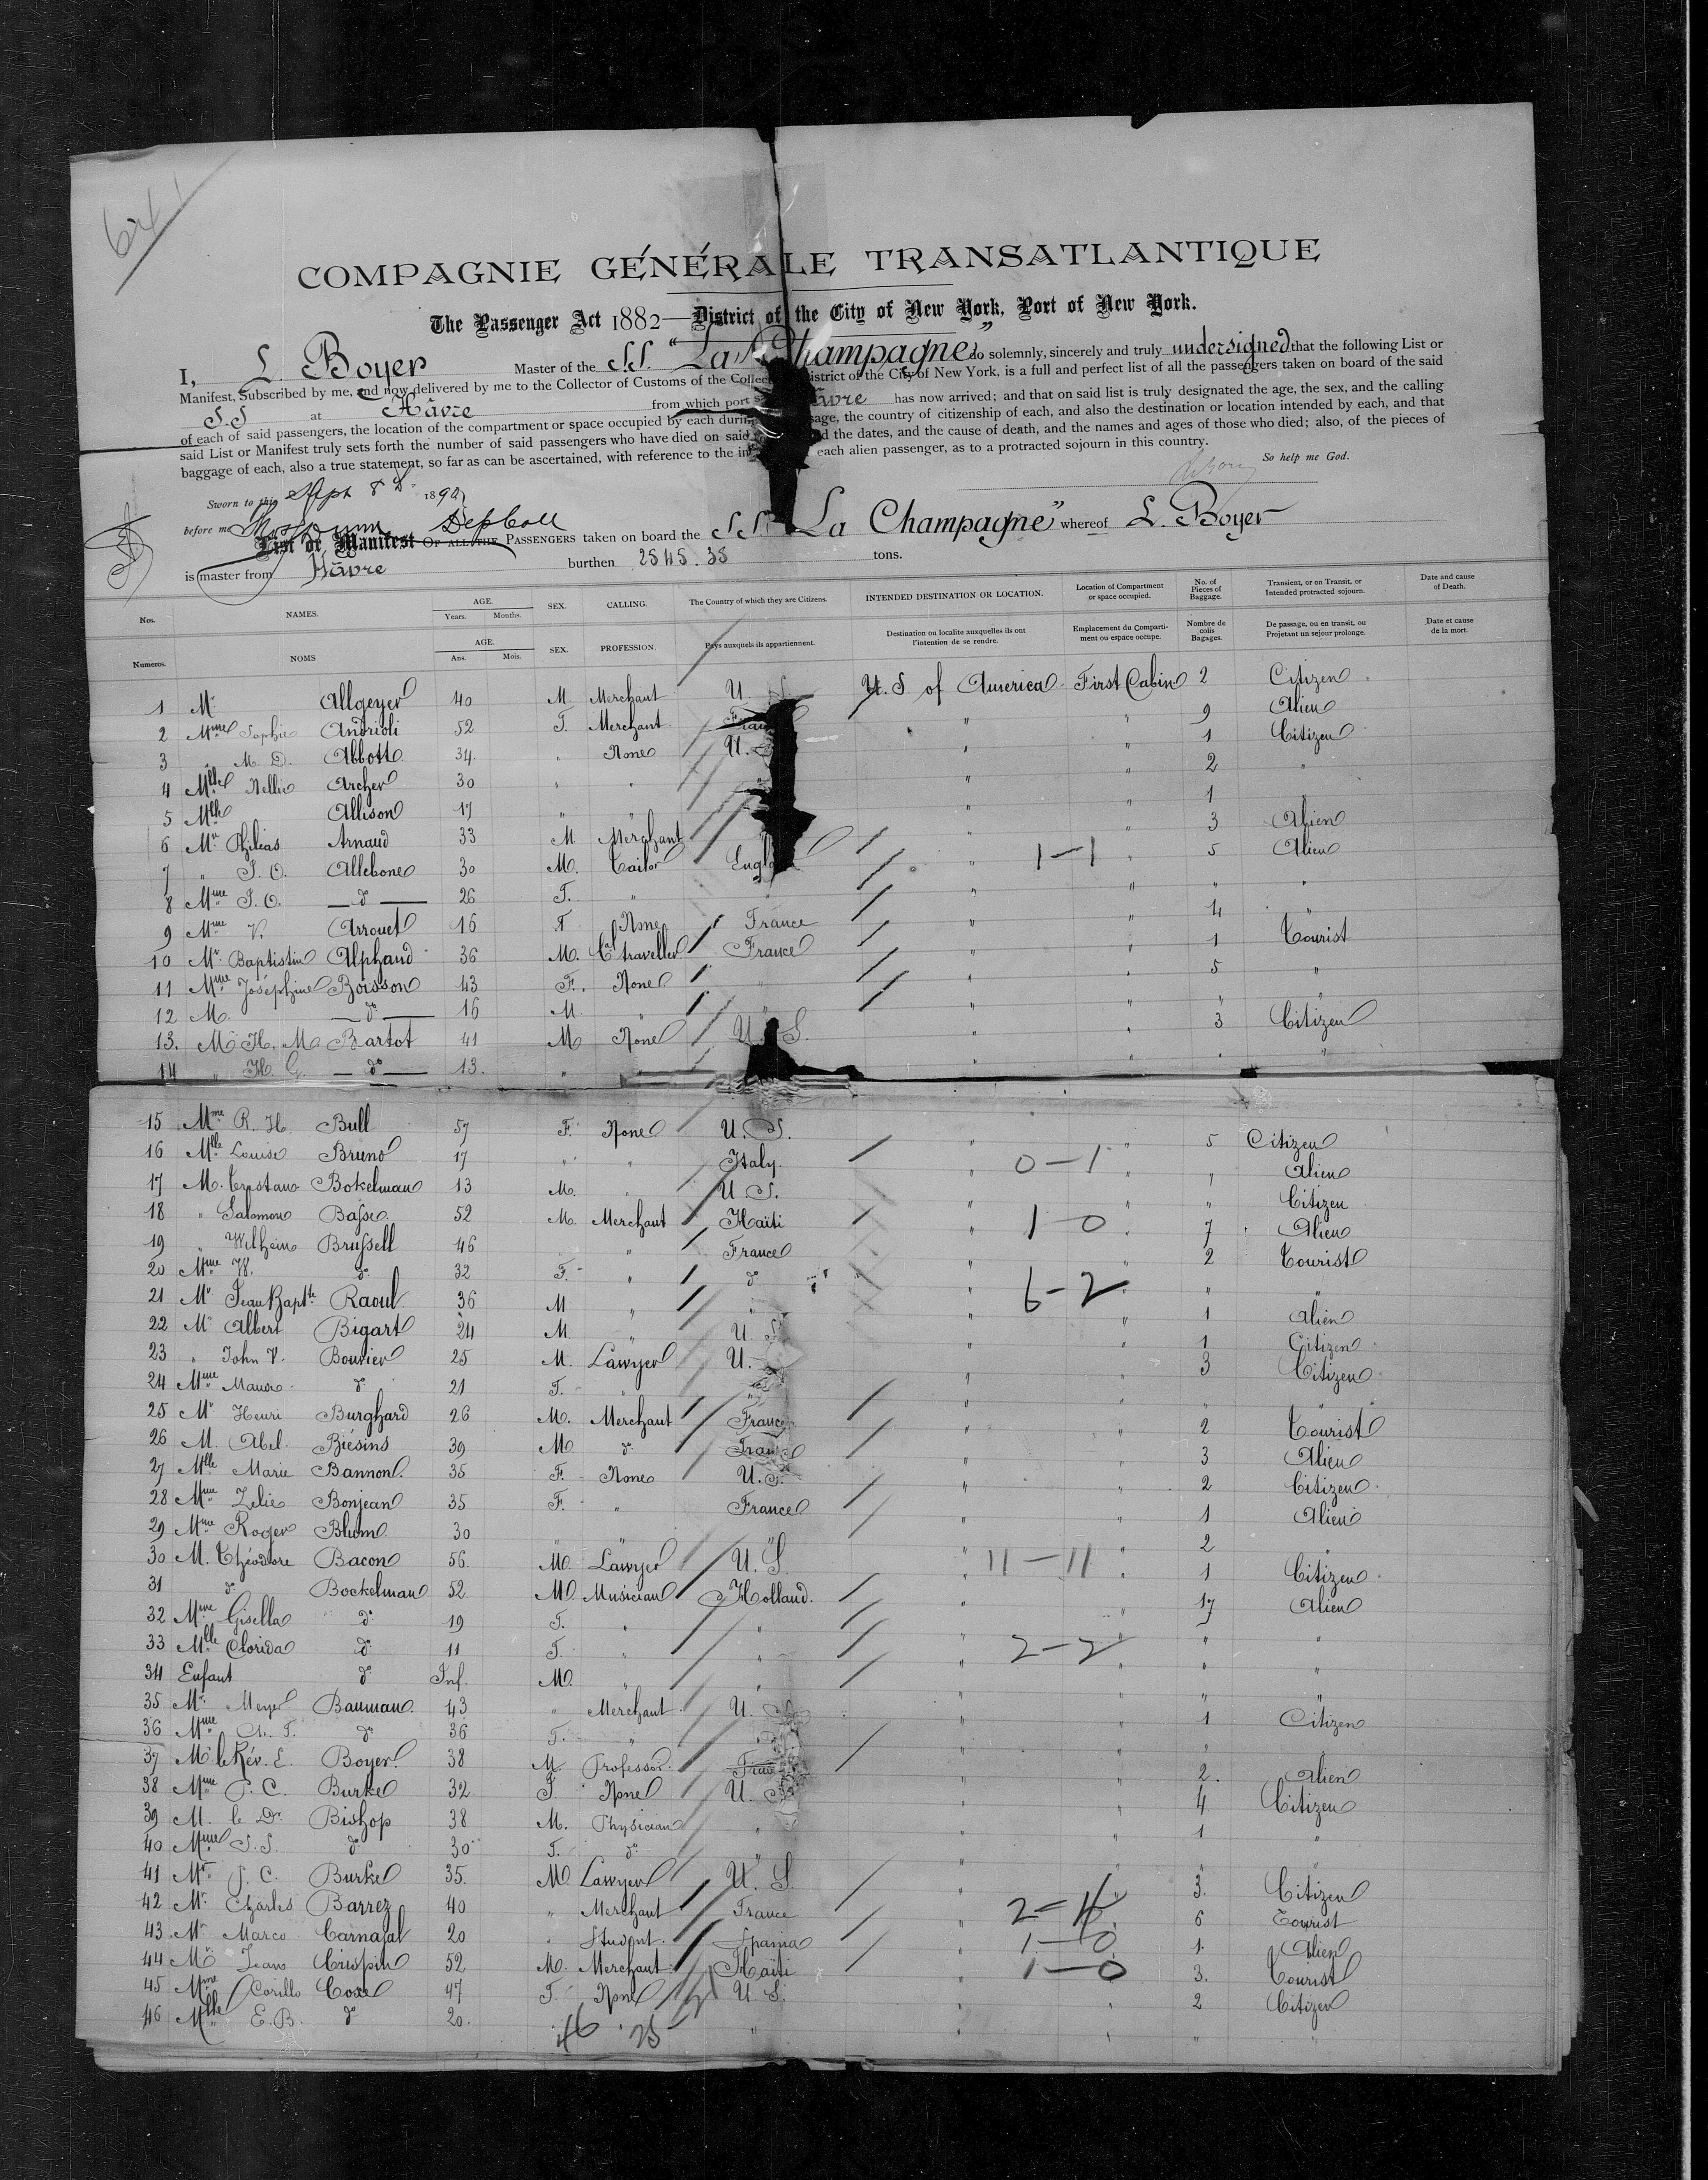 COMPAGNIE GÉNÉRALE TRANSATLANTIQUE
The Passenger Act 1882—District of the City of New York, Port of New York.
I, L. Boyer Master of the S.S. "La Champagne" do solemnly, sincerely and truly undersigned that the following List or
Manifest, Subscribed by me, and now delivered by me to the Collector of Customs of the Collec District of the City of New York, is a full and perfect list of all the passengers taken on board of the said
S.S at Hâvre from which port s Hâvre has now arrived; and that on said list is truly designated the age, the sex, and the calling
of each of said passengers, the location of the compartment or space occupied by each durin sage, the country of citizenship of each, and also the destination or location intended by each, and that
said List or Manifest truly sets forth the number of said passengers who have died on said d the dates, and the cause of death, and the names and ages of those who died; also, of the pieces of
baggage of each, also a true statement, so far as can be ascertained, with reference to the in each alien passenger, as to a protracted sojourn in this country.
So help me God.
Sworn to this Sept 8th 1890
before me
List or Manifest OF ALL THE PASSENGERS taken on board the S.S. La Champagne" whereof L. Boyer
is master from Hâvre burthen 2545.38 tons.
Nos. NAMES. AGE. Years. Months. SEX. CALLING. The Country of which they are Citizens. INTENDED DESTINATION OR LOCATION. Location of Compartment or space occupied. No. of Pieces of Baggage. Transient, or on Transit, or Intended protracted sojourn. Date and cause of Death.
Numeros. NOMS AGE. Ans. Mois. SEX. PROFESSION. Pays auxquels ils appartiennent. Destination ou localite auxquelles ils ont l'intention de se rendre. Emplacement du Comparti-ment ou espace occupe. Nombre de colis Bagages. De passage, ou en transit, ou Projetant un sejour prolonge. Date et cause de la mort.
1 Mr Allgeyer 40 M Merchant U. S. U. S. of America First Cabin 2 Citizen
2 Mme Sophie Andrioli 52 F. Merchant Fran " " 9 Alien
3 " M. D. Abbott 34 " None U. S " " 1 Citizen
4 Mlle Nellie Archer 30 " " " " 2 "
5 Mlle Allison 17 " " " " 1 "
6 Mr Philias Arnaud 33 M Merchant " " 3 Alien
7 " J. O. Allebone 30 M. Tailor Engl " 1-1 " 5 Alien
8 Mme J. O. do 26 F. " " " " "
9 Mme V. Arrouet 16 F None France " " 4 "
10 Mr Baptistin Alphand 36 M. C. traveller France " " 1 Tourist
11 Mme Joséphine Boisson 43 F. None " " " 5 "
12 M. do 16 M. " " " " " "
13. M H. M Bartot 41 M None U. S. " " 3 Citizen
14 " H. G. do 13. " " " " "
15 Mme R. H. Bull 57 F. None U. S. " " 5 Citizen
16 Mlle Louise Bruno 17 " " Italy. " 0-1 " " Alien
17 M. Bokelman 13 M. " U. S. " " " Citizen
18 " Salomon Basse 52 M. Merchant Haïti " 1-0 " 7 Alien
19 " Wilhein Brussell 46 " France " " 2 Tourist
20 Mme W. do 32 F. " do " 6-2 " " "
21 Mr Jean Bapte Raoul 36 M " " " " 1 Alien
22 Mr Albert Bigart 24 M " U. S. " " 1 Citizen
23 " John V. Bouvier 25 M. Lawyer U. S " " 3 Citizen
24 Mme Maude do 21 F. " " " " "
25 Mr Henri Burghard 26 M. Merchant France " " 2 Tourist
26 M. Abel Biésins 39 M do France " " 3 Alien
27 Mlle Marie Bannon 35 F. None U. S. " " 2 Citizen
28 Mme Zelie Bonjean 35 F. " France " " 1 Alien
29 Mme Roger Blum 30 " " " " " 2 "
30 M. Théodore Bacon 56 M. Lawyer U. S. " 11-11 " 1 Citizen
31 do Bockelman 52 M. Musician Holland. " " 17 Alien
32 Mme Gisella do 19 F. " " " " " "
33 Mlle Clorida do 11 F. " " " 2-2 " " "
34 Enfant do Inf. M. " " " " " "
35 Mr Meyer Bauman 43 " Merchant U. S " " 1 Citizen
36 Mme do 36 F. " " " " "
37 M le Rév. E. Boyer 38 M. Professor. Fran " " 2. Alien
38 Mme J. C. Burke 32 F. None U. S " " 4 Citizen
39 M. le Dr Bishop 38 M. Physician " " " 1 "
40 Mme S. S. do 30 F. do " " " " "
41 Mr J. C. Burke 35. M. Lawyer U. S. " " 3. Citizen
42 Mr Charles Barrez 40 " Merchant France " 2-4 6 Tourist
43 Mr Marco Carnajal 20 " Student. Spania " 1-0 1. Alien
44 Mr Jean Crispin 52 M. Merchant Haïti " 1-0 3. Tourist
45 Mme Corillo Coxe 47 F. None U. S. " " 2 Citizen
46 Mlle E. B. do 20. " " " " " "
46 25